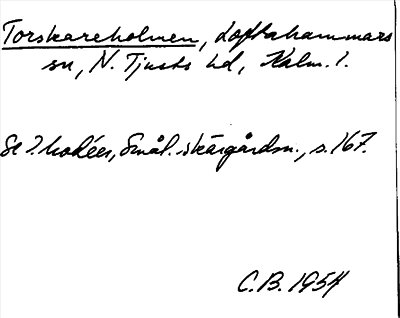 Torskareholmen, Loftahammars
sn, N. Tjusts hd, Kalm. l.
Se J. Modéer, Smål. skärgårdsn., s. 167.
C.B. 1954